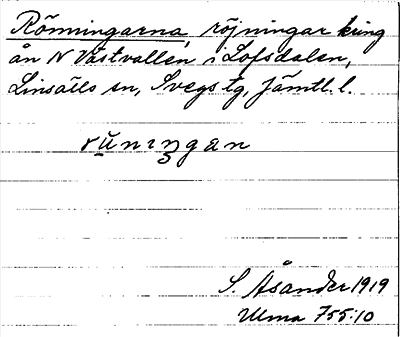 Rönningarna, röjningar kring
ån N Västvallen i Lofsdalen,
Linsälls sn, Svegs tg, Jämtl. l.
rūnıŋgan
S. Åsander 1919
Ulma 755:10